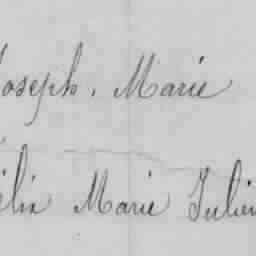 Joseph. Marie
élix Marie Julien